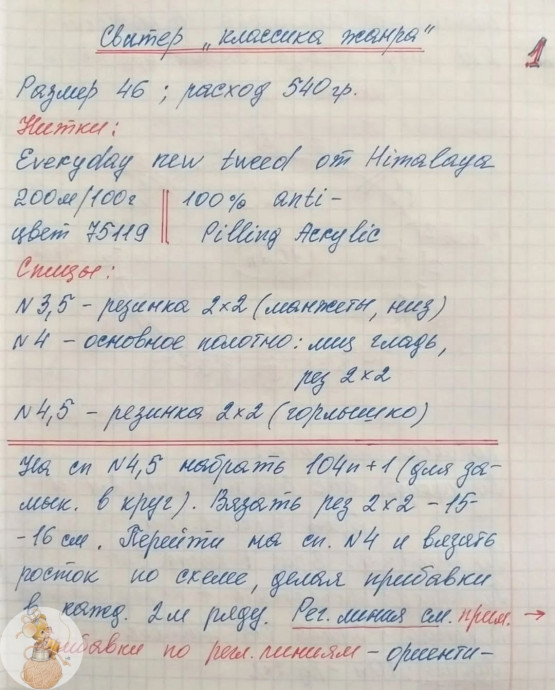 Свитер „классика жанра“
1
Размер 46 ; расход 540гр.
Нитки:
Everyday new tweed от Himalaya
200м/100г || 100% anti-
цвет 75119 || Pilling Acrylic
Спицы:
N3,5 - резинка 2×2 (манжеты, низ)
N4 - основное полотно: лиц гладь,
рез 2×2
N4,5 - резинка 2×2 (горлышко)
На сп N4,5 набрать 104п+1 (для за-
мык. в круг). Вязать рез 2×2 -15-
-16см. Перейти на сп. N4 и вязать
росток по схеме, делая прибавки
в кажд. 2м ряду. Рег. линия см. прим. →
прибавки по регл. линиям - ориенти-